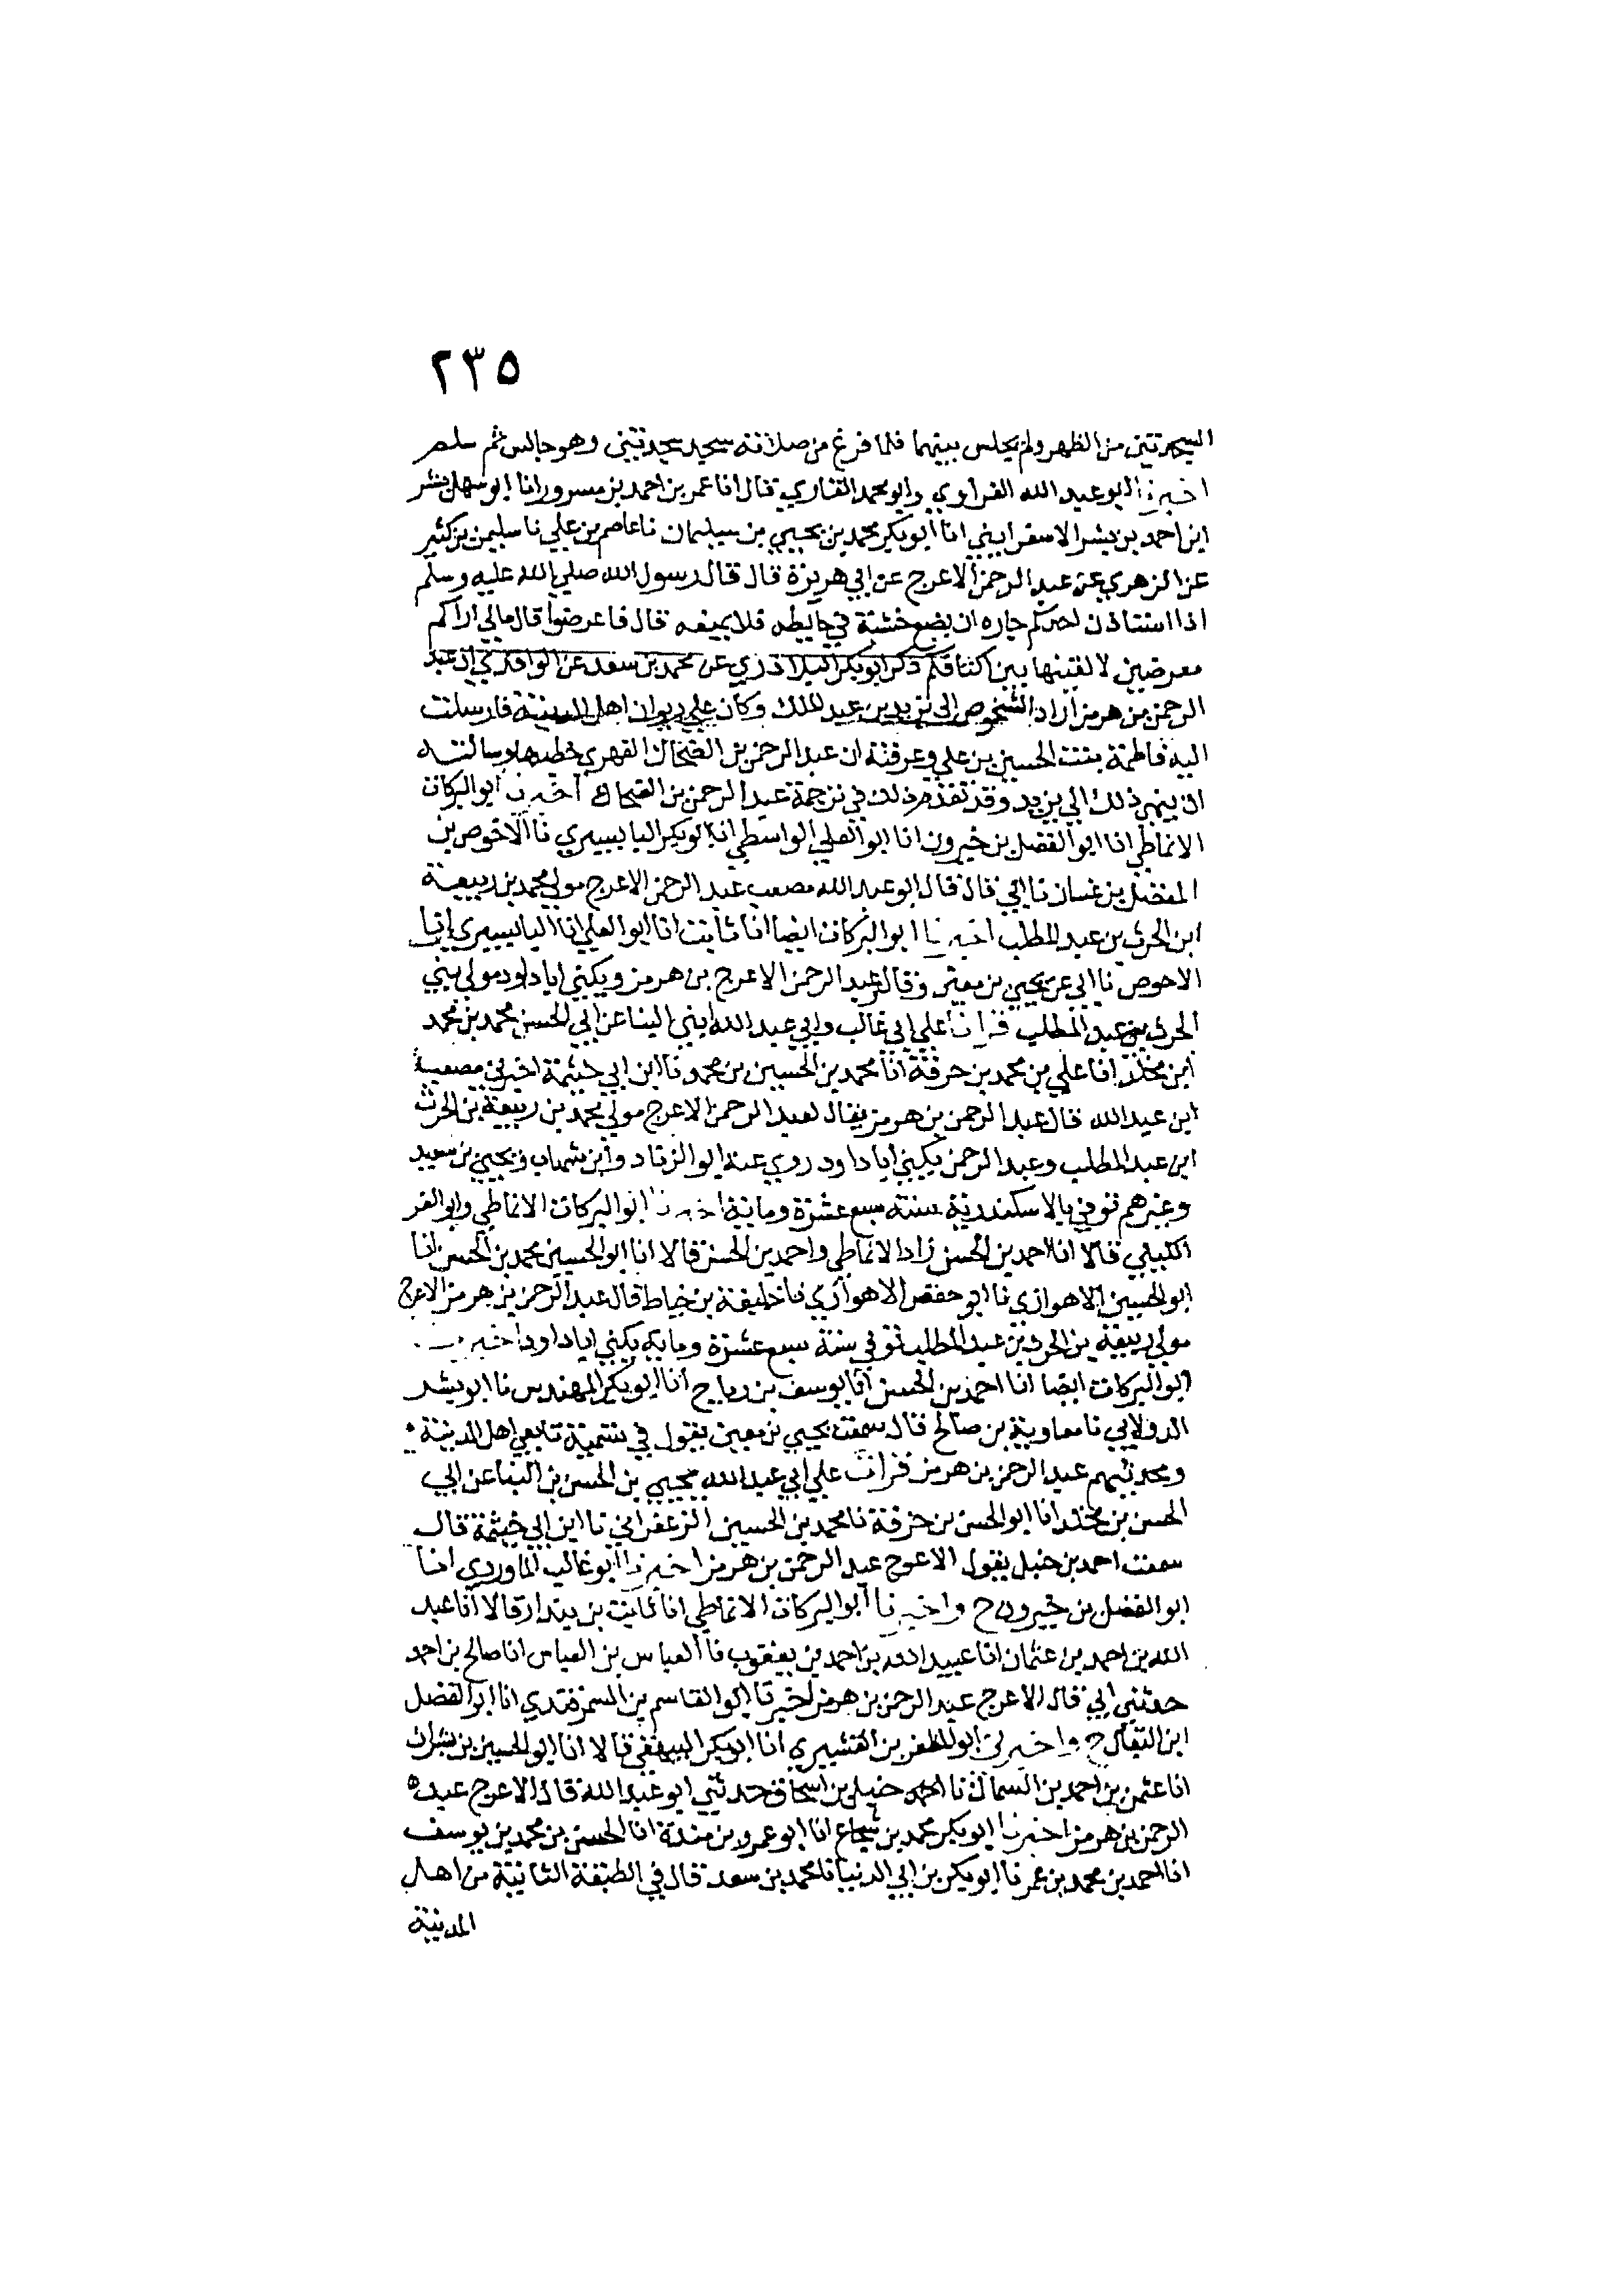 ٢٣٥
السجدتين من الظهر ولم يجلس بينهما فلما فرغ من صلاته سجد سجدتين وهو جالس ثم سلم
اخبرنا ابو عبد الله الفراوي وابو محمد القاري قال انا عمر بن احمد بن مسرور انا ابو سهل بشر
ابن احمد بن بشر الاسفرايني انا ابو بكر محمد بن يحيي بن سليمان نا عاصم بن علي نا سليمن بن كثير
عن الزهري عن عبد الرحمن الاعرج عن ابي هريرة قال قال رسول الله صلي الله عليه وسلم
اذا استاذن احدكم جاره ان يضع خشبة في حايطه فلا يمنعه قال فاعرضوا قال مالي اراكم
معرضين لالقينها بين اكتافكم ذكر ابو بكر البلاذري عن محمد بن سعد عن الواقدي ان عبد
الرحمن بن هرمز اراد الشخوص الى يزيد بن عبد الملك وكان علي ديوان اهل المدينة فارسلت
اليه فاطمة بنت الحسين بن علي وعرفته ان عبد الرحمن بن الضحاك الفهري خطبها وسالته
ان ينهي ذلك الي يزيد وقد تقدم ذلك في ترجمة عبد الرحمن بن الضحاك اخبرنا ابو البركات
الانماطي انا ابو الفضل بن خيرون انا ابو العلي الواسطي انا ابو بكر البابسيري نا الاحوص بن
المفضل بن غسان نا ابي قال قال ابو عبد الله مصعب عبد الرحمن الاعرج مولي محمد بن ربيعة
ابن الحرث بن عبد المطلب اخبرنا ابو البركات ايضا انا ثابت انا ابو العلي انا البابسيري انا
الاحوص نا ابي عن يحيي بن معين وقال عبد الرحمن الاعرج بن هرمز ويكني ابا داود مولي بني
الحرث بن عبد المطلب قرات علي ابي غالب وابي عبد الله ابني البنا عن ابي الحسن محمد بن محمد
ابن مخلد انا علي بن محمد بن خزفة انا محمد بن الحسين بن محمد نا ابن ابي خيثمة اخبرني مصعب
ابن عبد الله قال عبد الرحمن بن هرمز يقال لعبد الرحمن الاعرج مولي محمد بن ربيعة بن الحرث
ابن عبد المطلب وعبد الرحمن يكني ابا داود روي عنه ابو الزناد وابن شهاب ويحيي بن سعيد
وغيرهم توفي بالاسكندرية سنة سبع عشرة وماية اخبرنا ابو البركات الانماطي وابو العز
الكيلي قالا انا احمد بن الحسن زاد الانماطي واحمد بن الحسن قالا انا ابو الحسين محمد بن الحسن انا
ابو الحسين الاهوازي نا ابو حفص الاهوازي نا خليفة بن خياط قال عبد الرحمن بن هرمز الاعرج
مولي ربيعة بن الحرث بن عبد المطلب توفي سنة سبع عشرة وماية يكني ابا داود اخبرنا
ابو البركات ايضا انا احمد بن الحسن انا يوسف بن رباح انا ابو بكر المهندس نا ابو بشر
الدولابي نا معاوية بن صالح قال سمعت يحيي بن معين يقول في تسمية تابعي اهل المدينة
ومحدثيهم عبد الرحمن بن هرمز قرات علي ابي عبد الله يحيي بن الحسن بن البنا عن ابي
الحسن بن مخلد انا ابو الحسن بن خزفة نا محمد بن الحسين الزعفراني نا ابن ابي خيثمة قال
سمعت احمد بن حنبل يقول الاعرج عبد الرحمن بن هرمز اخبرنا ابو غالب الماوردي انا
ابو الفضل بن خيرون ح واخبرنا ابو البركات الانماطي انا ثابت بن بندار قالا انا عبيد
الله بن احمد بن عثمان انا عبيد الله بن احمد بن يعقوب نا العباس بن العباس انا صالح بن احمد
حدثني ابي قال الاعرج عبد الرحمن بن هرمز اخبرنا ابو القاسم بن السمرقندي انا ابو الفضل
ابن البقال ح واخبرنا ابو المظفر بن القشيري انا ابو بكر البيهقي قالا انا ابو الحسين بن بشران
انا عثمن بن احمد بن السماك نا حنبل بن اسحاق حدثني ابو عبد الله قال الاعرج عبد
الرحمن بن هرمز اخبرنا ابو بكر محمد بن شجاع انا ابو عمرو بن مندة انا الحسن بن محمد بن يوسف
انا احمد بن محمد بن عمر نا ابو بكر بن ابي الدنيا نا محمد بن سعد قال في الطبقة الثانية من اهل
المدينة